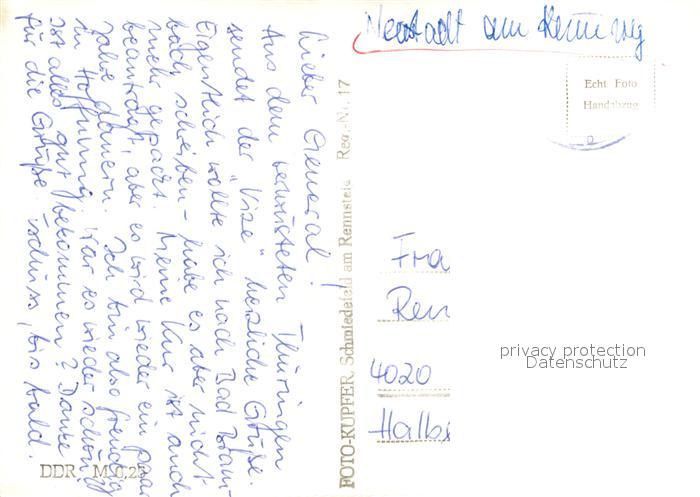 Neustadt am Rennweg
Echt Foto
Handabzug
Lieber General!
Aus dem verwüsteten Thüringen
sendet der "Vize" herzliche Grüße.
Eigentlich wollte ich nach Bad Bram-
bach schreiben - habe es aber nicht
mehr gepackt. Meine Kur ist auch
beantragt, aber es wird wieder ein paar
Jahre dauern. Ich bin also freudig
in Hoffnung. War es wieder schön,
ist alles gut bekommen? Danke
für die Grüße. Tschüss, bis bald.
DDR M 0,25
FOTO-KUPFER, Schmiedefeld am Rennsteig Reg.-Nr. 17
Fra
Ren
4020
Halb
privacy protection
Datenschutz